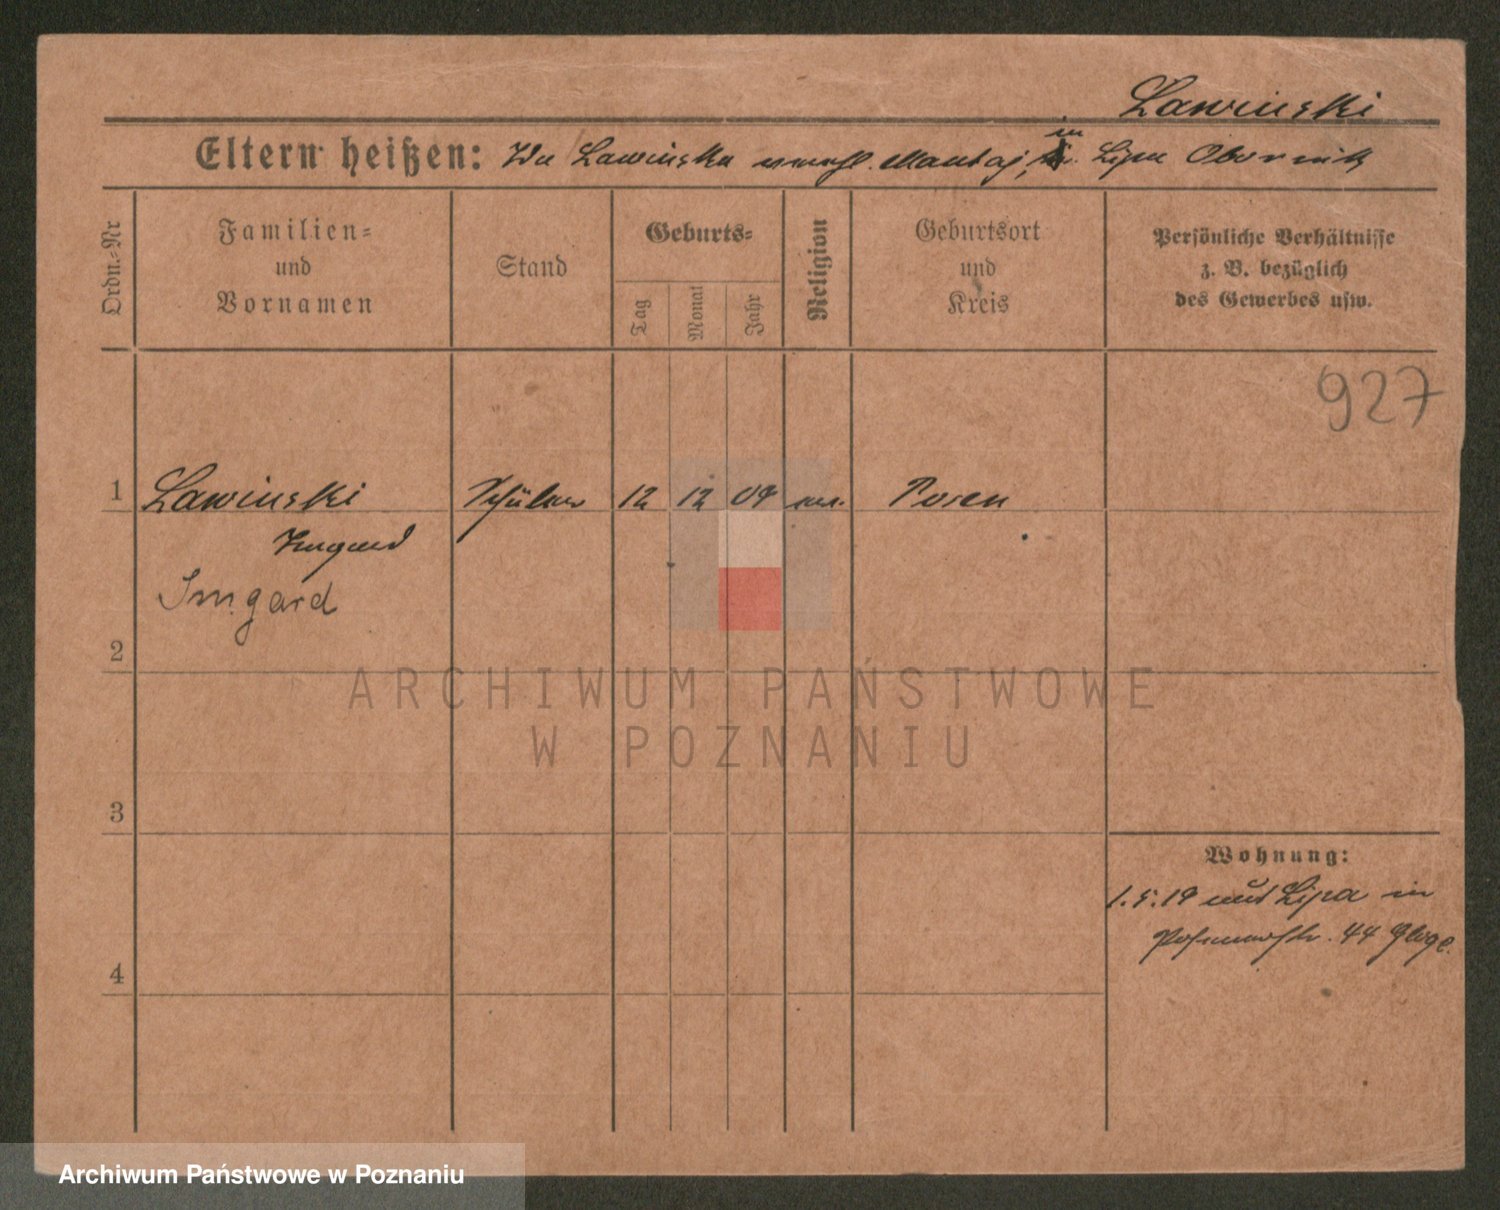 Lawinski
Eltern heißen: Ida Lawinska verehl. Mantaj, in Lipa Obornik
Ordn.-Nr
Familien-
und
Vornamen
Stand
Geburts-
Tag
Monat
Jahr
Religion
Geburtsort
und
Kreis
Persönliche Verhältnisse
z. B. bezüglich
des Gewerbes usw.
927
1 Lawinski Schüler 12 12 09 Posen
Irmgard
Irmgard
2
ARCHIWUM PAŃSTWOWE
W POZNANIU
3
Wohnung:
1.5.19 aus Lipa in
44 Gloge.
4
Archiwum Państwowe w Poznaniu